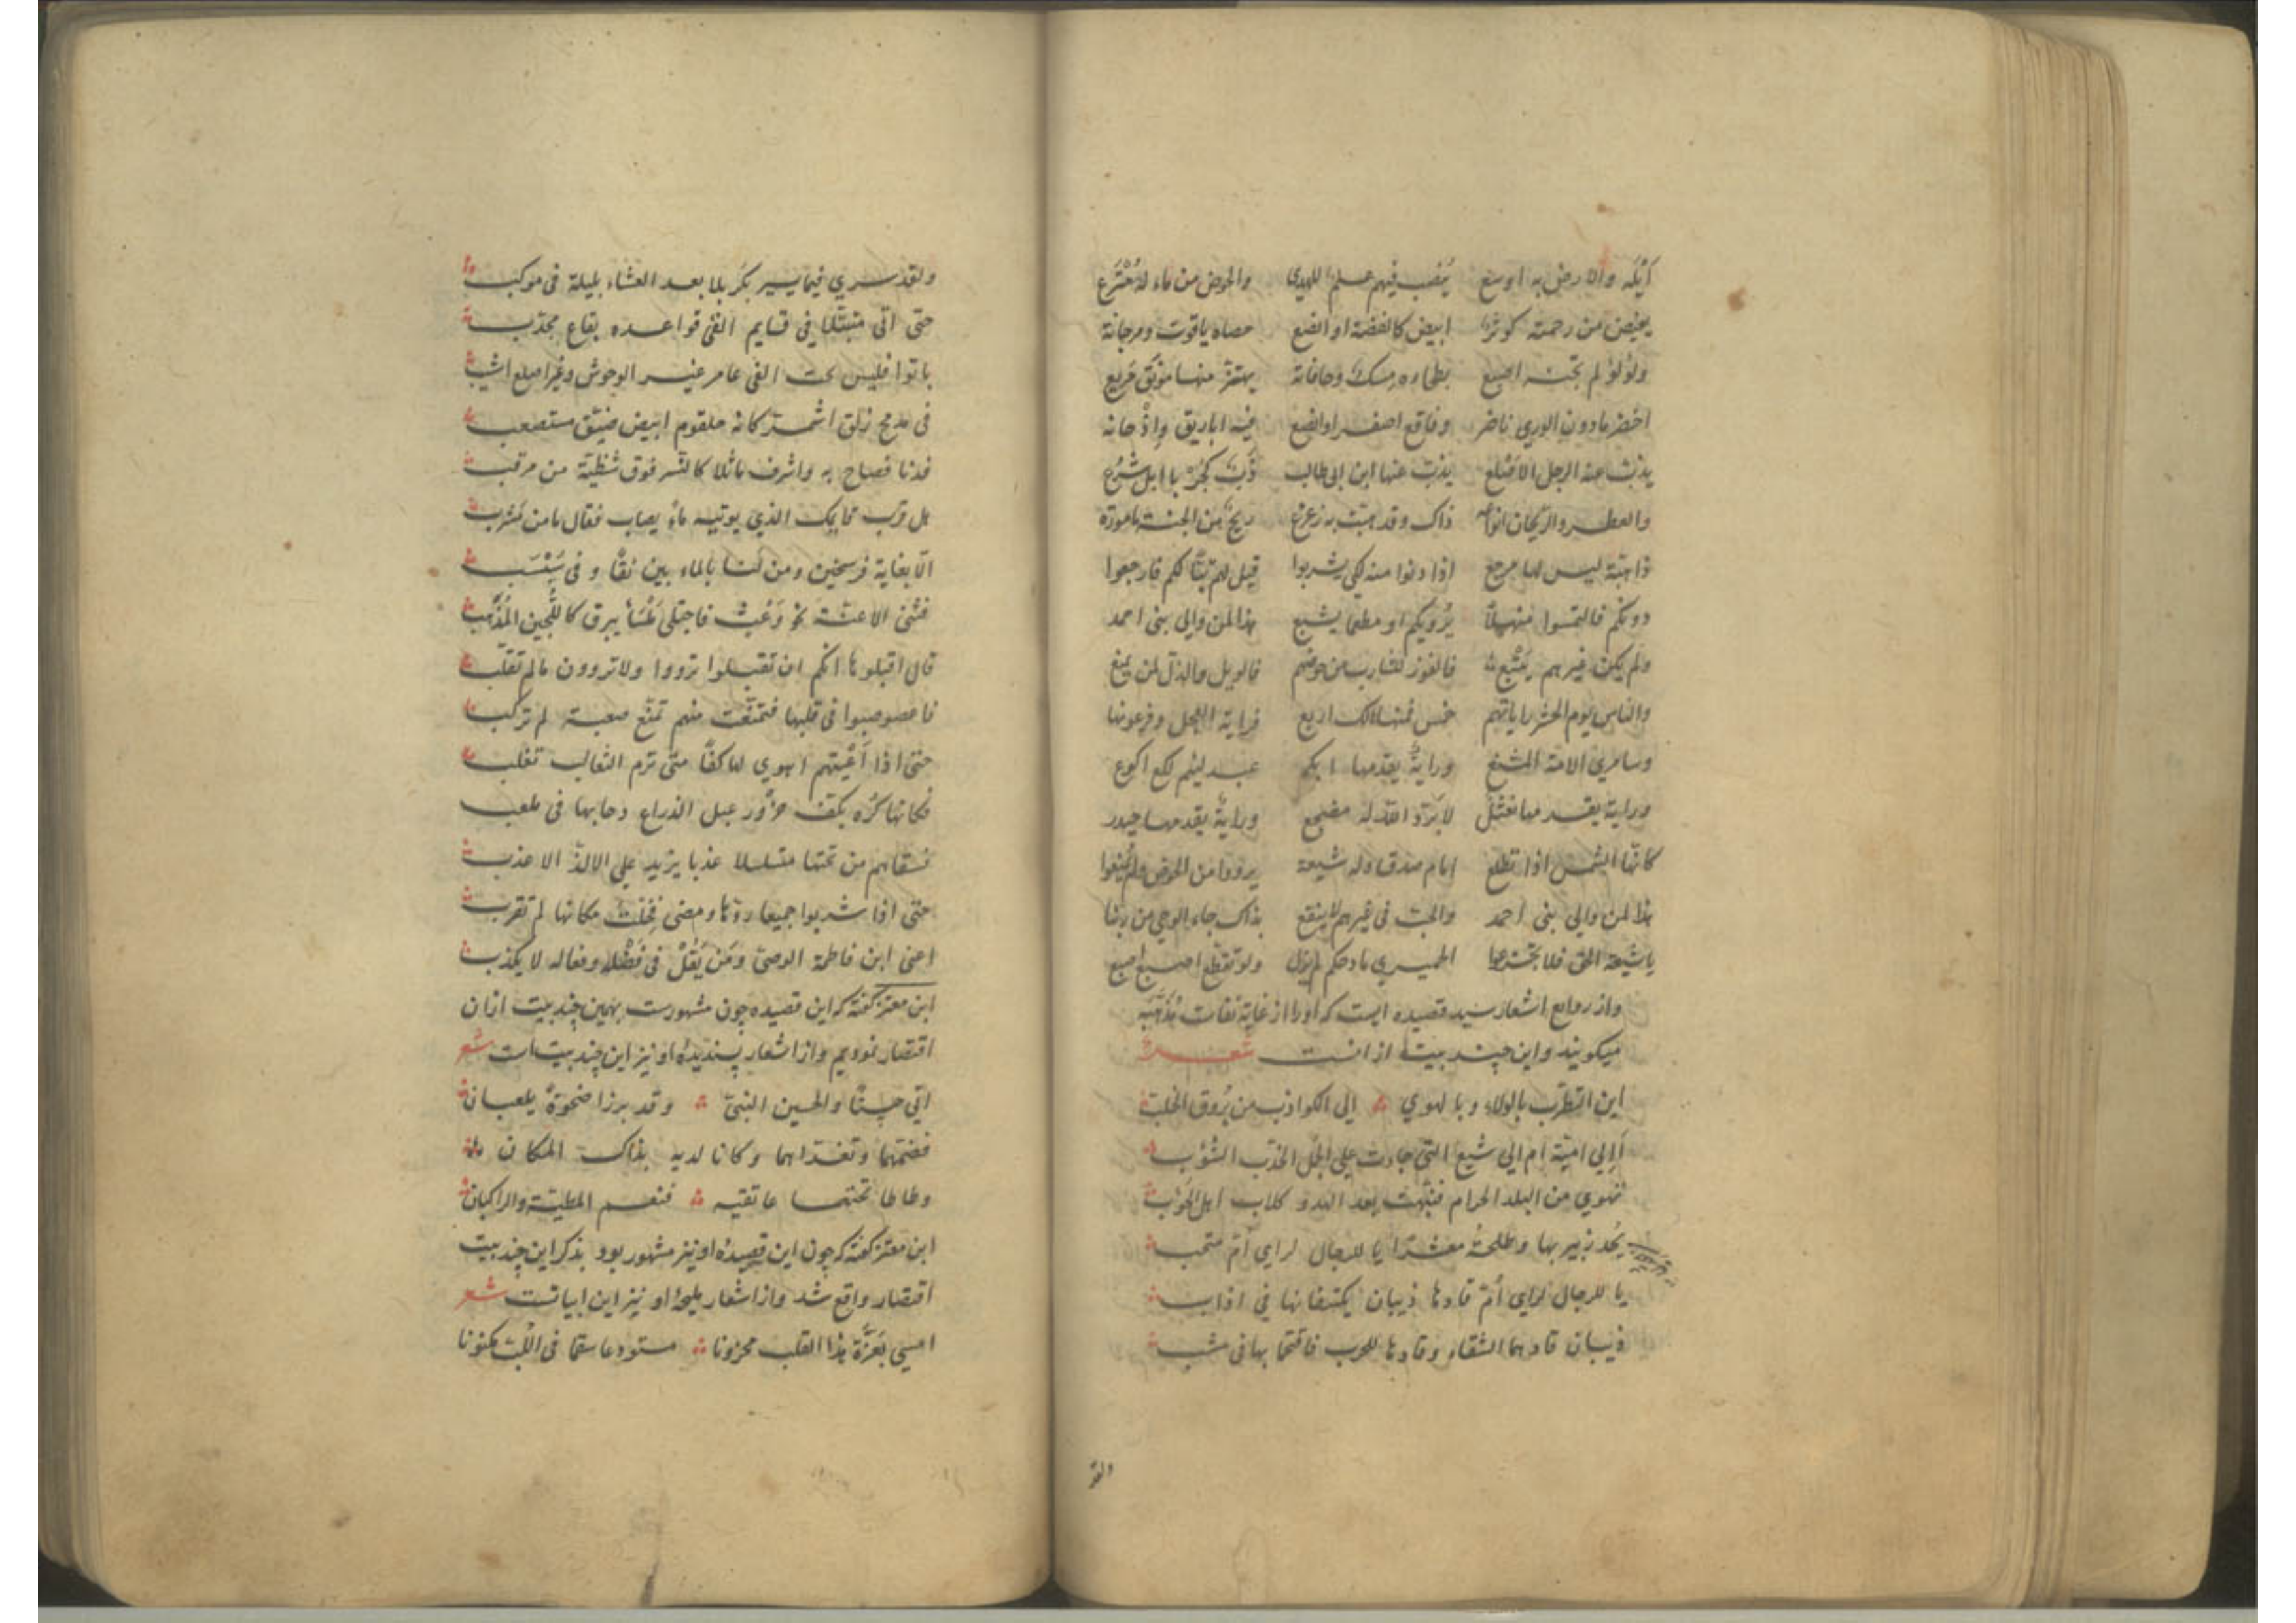 أیْلَه والارض به اوسع ینصب فیهم علم للهدی والحوض من ماء له مُتْرَع
یفیض من رحمته کوثر ابیض کالفضة او انصع حصاه یاقوت ومرجانة
ولؤلؤ لم تجنه اصبع بطحاوه مسک وحافاته یهتز منها مونق مریع
اخضر مادون الوری ناضر وفاقع اصفر او انصع فیه اباریق وقدحانه
یذب عنه الرجل الاصلع یذب عنها ابن ابی طالب ذَبّ کجربا ابل شرع
والعطر والریحان انواعه ذاک وقد هبت به زعزع ریح من الجنة مامورة
ذاهبة لیس لها مرجع اذا دنوا منه لکی یشربوا قیل لهم تبّا لکم فارجعوا
دونکم فالتمسوا منهلا یُرویکم او مطعما یشبع هذا لمن والی بنی احمد
ولم یکن غیرهم یتبع فالفوز للشارب من حوضهم فالویل والذل لمن یمنع
والناس یوم الحشر رایاتهم خمس فمنها هالک اربع فرایة العجل وفرعونها
وسامری الامة المشنع ورایةٌ یقدمها ابکم عبد لئیم لکع اکوع
ورایة یقدمها نعثل لا برّد الله له مضجع ورایةٌ یقدمها حیدر
کانّها الشمس اذا تطلع امام صدق وله شیعة یرووا من الحوض ولم یُمنعوا
هذا لمن والی بنی احمد والحبّ فی غیرهم لا ینفع بذاک جاء الوحی من ربنا
یا شیعة الحق فلا تجزعوا الحمیری مادحکم لم یزل ولو تقطع اصبع اصبع
واز روایع اشعار سید قصیده ایست که اورا از غایة نفاست مُذَهَّبَه
میکویند واین چند بیت از انست شعر
این التطرّب بالولاء وبالهوی الی الکواذب من بُروق الخلّب
أالی امیّة ام الی شیع التی جاءت علی الجمل الخدبّ الشوقب
تهوی من البلد الحرام فنبّهت بعد الهدو کلاب اهل الحوأب
یحدو زبیر بها وطلحة معشرا یا للرجال لرای امّ متحب
یا للرجال لرای أمّ قادها ذیبان یکتنفانها فی اذاب
ذیبان قادهما الشقاء وقادها للحرب فاقتحما بها فی منشب
ولقد
ولقد سری فیما یسیر بکربلا بعد العشاء بلیلة فی موکب
حتی اتی متبتّلا فی قایم القی قواعده بقاع مجدب
باتوا فلیس بحیث القی عامر غیر الوحوش وغیر اصلع اشیب
فی مدمج زلق اشمّ کانه حلقوم ابیض ضیّق مستصعب
فدنا فصاح به واشرف ماثلا کالنّسر فوق شظیّة من مرقب
هل قرب قایمک الذی بوئیته ماءٌ یصاب فقال مامن مشرب
الّا بغایة فرسخین ومن لنا بالماء بین نقًا و فی سَبْسَب
فثنی الاعنّة نحو وَعْث فاجتلی مَلْسَأ یبرق کاللُّجین المُذْهَب
قال اقبلوها انکم ان تقبلوا ترووا ولا تروون مالم تقلب
فاعصوصبوا فی قلبها فتمنّعت منهم تمنّع صعبة لم ترکب
حتی اذا أعْیَتهم اهوی لها کفّا متی ترم المغالب تغلب
فکانها کُره بکفّ حزوّر عبل الذراع دحابها فی ملعب
فسقاهم من تحتها متسلسلا عذبا یزید علی الالذّ الاعذب
حتی اذا شربوا جمیعا ردّها ومضی فخلت مکانها لم تقرب
اعنی ابن فاطمة الوصیّ ومَن یَقُلْ فی فَضْلِه وفعاله لا یکذب
ابن معتز کفته که این قصیده چون مشهورست بهمین چند بیت ازان
اقتصار نمودیم واز اشعار پسندیدهٔ او نیز این چند بیت است شعر
اتی حسنًا والحسین النبیّ وقد برزا ضحوةً یلعبان
فضمّهما وتفدّاهما وکانا لدیه بذاک المکان
وطاطا تحتهما عاتقیه فنعم المطیّة والراکبان
ابن معتز کفته که چون این قصیدهٔ او نیز مشهور بود بذکر این چند بیت
اقتصار واقع شد واز اشعار ملیحهٔ او نیز این ابیاتست شعر
امسی بعَزّة هذا القلب محزونا مستودعا سقما فی اللّب مکنونا